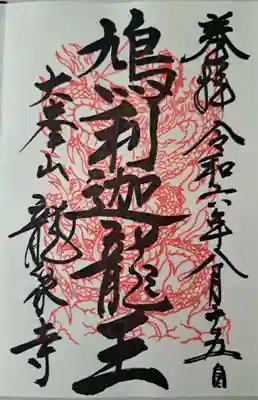 奉拝 令和六年八月十五日
鳩利迦龍王
大峯山 龍泉寺